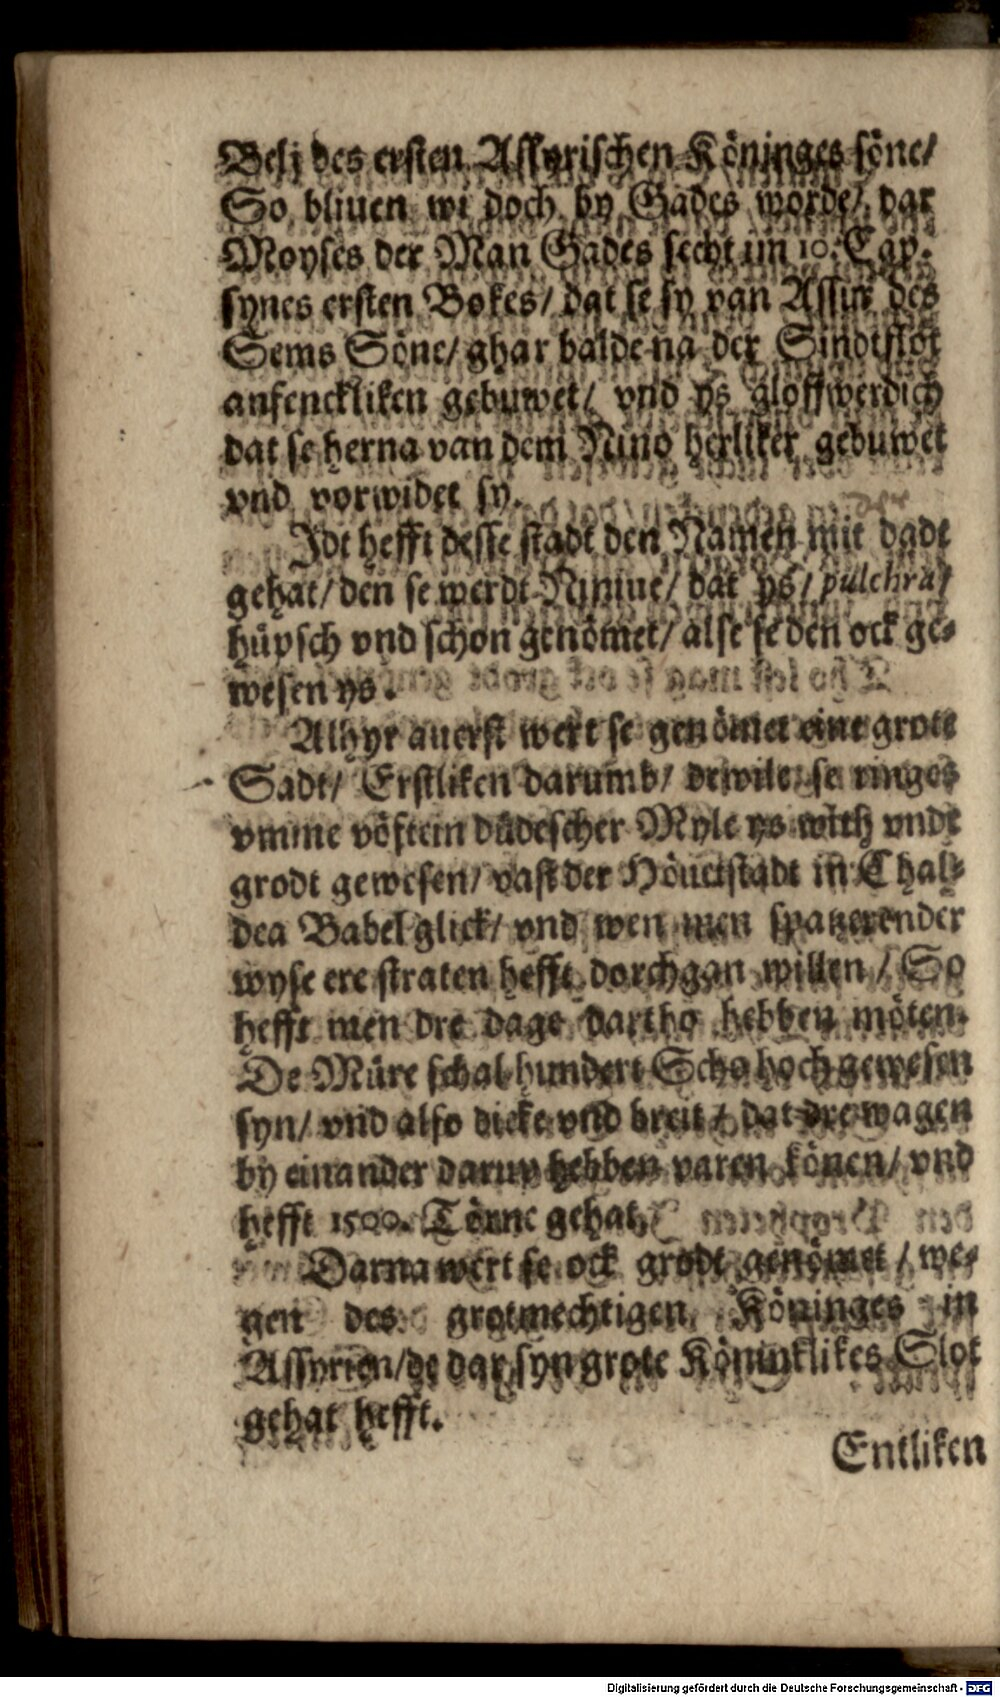 Belj des ersten Assyrischen Köninges söne/
So bliuen wi doch by Gades worde/ dar
Moyses der Man Gades secht im 10. Cap.
synes ersten Bokes/ dat se sy van Assur des
Sems Söne/ ghar balde na der Sindtflot
anfenckliken gebuwet/ vnd ys gloffwerdich
dat se herna van dem Nino herliker gebuwet
vnd vorwidet sy.
Idt hefft desse stadt den Namen mit dadt
gehat/ den se werdt Niniue/ dat ys/ pulchra/
hüpsch vnd schon genömet/ alse se den ock ge-
wesen ys.
Alhyr auerst wert se genömet eine grote
Sadt/ Erstliken darumb/ dewile se ringes
vmme vöftein düdescher Myle ys with vnde
grodt gewesen/ vast der Höuetstadt in Chal-
dea Babel glick/ vnd wen men spatzerender
wyse ere straten hefft dorchgan willen/ So
hefft men dre dage dartho hebben möten.
De Müre schal hundert Scho hoch gewesen
syn/ vnd also dicke vnd breit/ dat dre wagen
by einander darup hebben varen könen/ vnd
hefft 1500. Törne gehat.
Darna wert se ock grodt genömet/ we-
gen des grotmechtigen Köninges in
Assyrien/ de dar syn grote Köninklikes Slot
gehat hefft.
Entliken
Digitalisierung gefördert durch die Deutsche Forschungsgemeinschaft - DFG